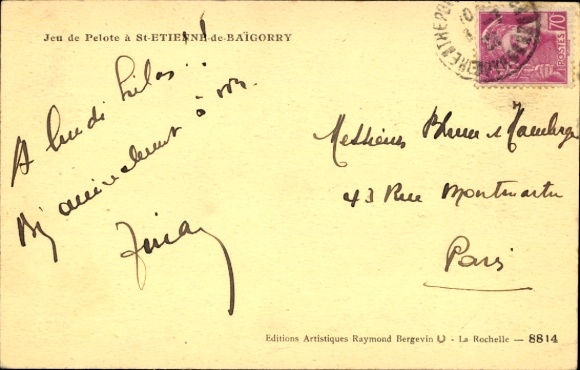 Jeu de Pelote à St-ETIENNE-de-BAÏGORRY
A lundi hélas!!
Bien amicalement à vous
Messieurs Blum &
43 Rue Montmartre
Paris
70
POSTES
Editions Artistiques Raymond Bergevin - La Rochelle — 8814